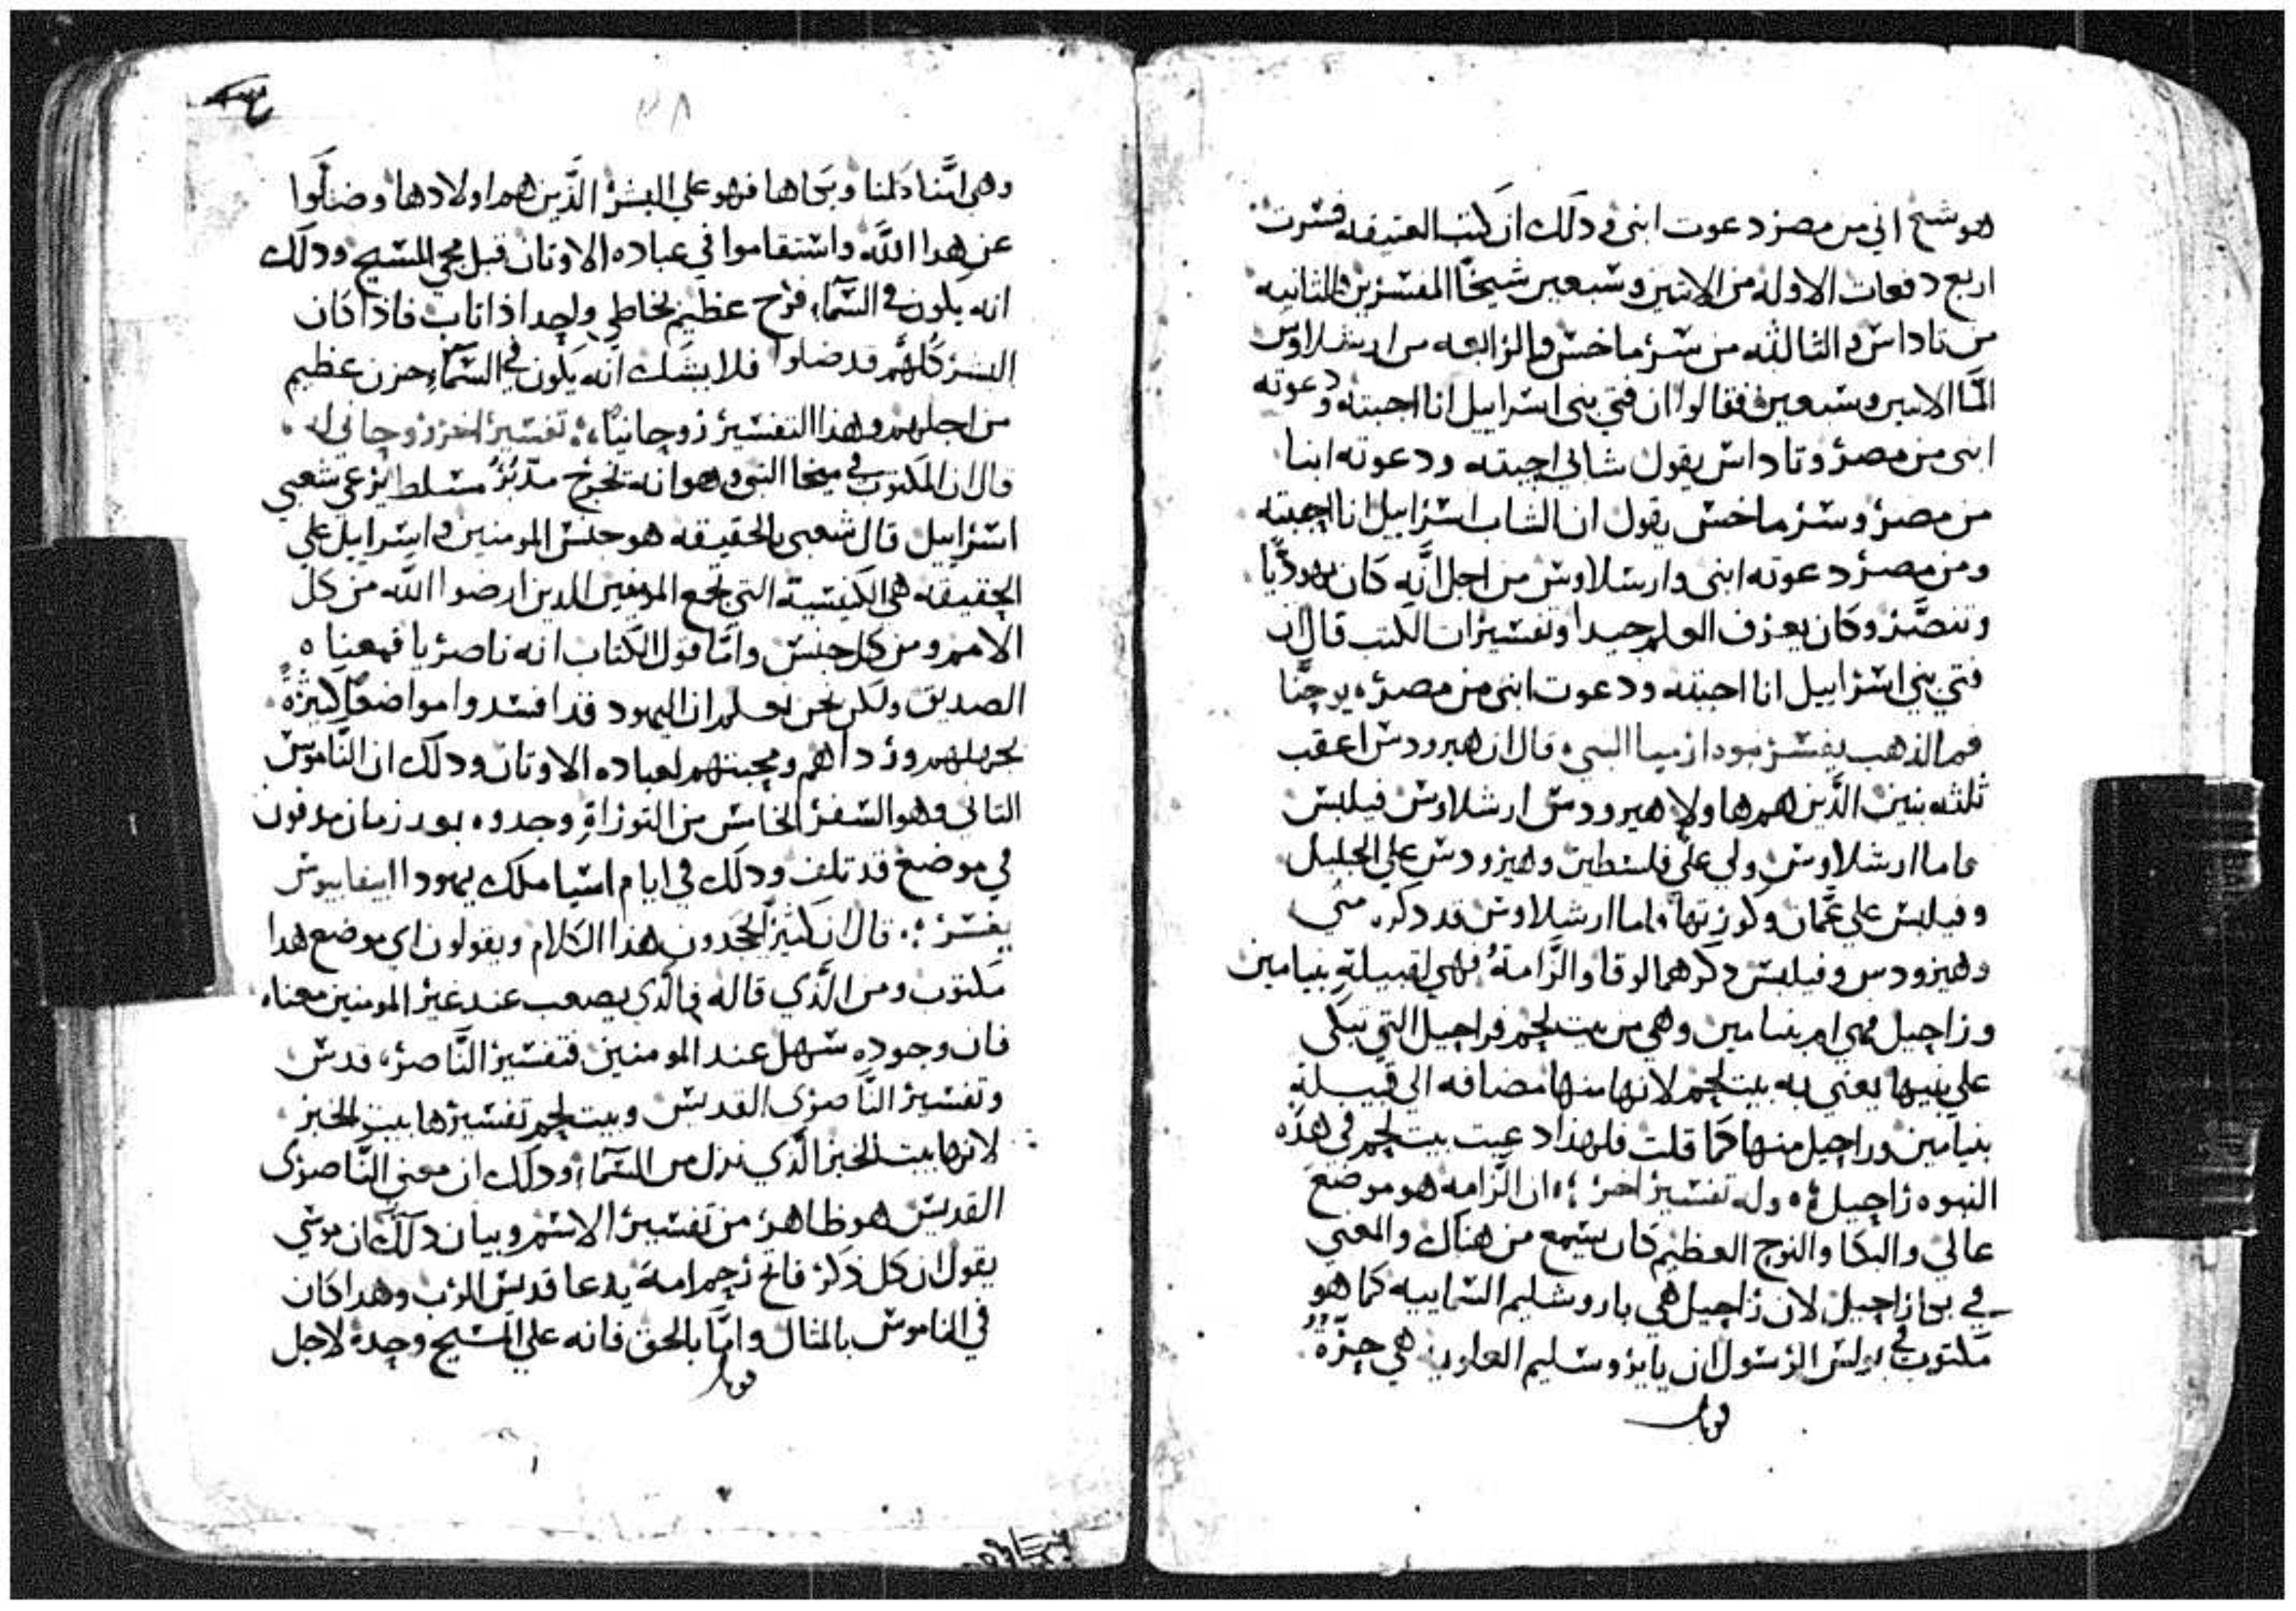 هوشع اني من مصر دعوت ابني و دلك ان كتب العتيقه فسرت
اربع دفعات الاوله من الاتنين وسبعين شيخًا المفسرين والثانيه
من تاداس والثالثه من سرماخس والرابعه من ارشلاوس
امّا الاتنين وسبعين فقالوا ان فتي بني اسراييل انا احببته ودعوته
ابني من مصر وتاداس يقول شابي احببته ودعوته ابنا
من مصر وسرماخس يقول ان الشاب اسراييل انا احببته
ومن مصر دعوته ابني وارسلاوس من اجل انَّه كان يهوديًّا
وتنصَّر وكان يعرف العلم جيدا وتفسيرات الكتب قال ان
فتي بني اسراييل انا احببته ودعوت ابني من مصر ه يوحنَّا
فم الذهب يفسر نبوه ارميا النبي ه قال ان هيرودس اعقب
ثلثه بنين الَّذين هم هاولاِ هيرودس ارشلاوس فيلبس
فاما ارشلاوس ولي علي فلسطين وهيرودس علي الجليل
وفيلبس علي عمَّان وكورتها واما ارشلاوس قد دكره متي
وهيرودس وفيلبس دكرهما لوقا والرَّامةُ فهي لقبيلةِ بنيامين
وراحيل فهي ام بنيامين وهي من بيت لحم فراحيل التي تبكي
علي بنيها يعني به بيت لحم لانها منها مضافه الي قبيلةِ
بنيامين وراحيل منها كما قلت فلهذا دعيت بيت لحم في هذه
النبوه راحيل ه وله تفسير اخر ؛ ان الرَّامه هو موضع
عالي والبكا والنوح العظيم كان يسمع من هناك والمعني
في بكا راحيل لان راحيل هي ياروشليم السماييه كما هو
مكتوب في بولس الرسول ان يايروسليم العلويه هي حرَّةٌ
قوبل
٣٨
وهي امَّنا كلنا وبكاها فهو علي البشر الَّذين هم اولادها وضلُّوا
عن هدا اللَّه واستقاموا في عباده الاوتان قبل مجي المسيح ودلك
انه يكون في السَّماء فرح عظيم لخاطي واحد اذا تاب فاذا كان
البشر كلُّهم قد ضلوا فلا يشك انَّه يكون في السَّماء حزن عظيم
من اجلهم وهذا التفسير روحانيًا ؛ تفسير اخر روحاني له
قال ان المكتوب في ميخا النبي وهو انه يخرج مدَبرٌ مسلط يرعي شعبي
اسراييل قال شعبي بالحقيقه هو جنس المومنين واسراييل علي
الحقيقه هي الكنيسة التي تجمع المومنين الدين ارضوا اللّه من كل
الامم ومن كل جنس وامَّا قول الكتاب انه ناصريا فمعناه
الصديق ولكن نحن نعلم ان اليهود قد افسدوا مواضعًا كثيرةً
لجهلهم وردااهم ومحبتهم لعباده الاوتان ودلك ان النَّاموس
التاني وهو السّفر الخامس من التوراةِ وجدوه بعد زمان مدفون
في موضع قد تلف ودلك في ايام اسيا ملك يهودا ابيفانيوس
يفسر ؛ قال ان كثير يجحدون هذا الكلام ويقولون اي موضع هدا
مكتوب ومن الَّذي قاله فالَّذي يصعب عند غير المومنين معناه
فان وجوده سهل عند المومنين فتفسير النَّاصره قدس
وتفسير النَّاصري القديس وبيت لحم تفسيرها بيت الخبز
لانها بيت الخبز الَّذي نزل من السَّماء ودلك ان معني النَّاصري
القديس هو ظاهر من تفسير الاسم وبيان دلك ان موسي
يقول ان كل ذكر فاتح رحم امه يدعا قديس الرب وهدا كان
في الناموس بالمثال وامَّا بالحق فانه علي المسيح وحده لاجل
قوبل